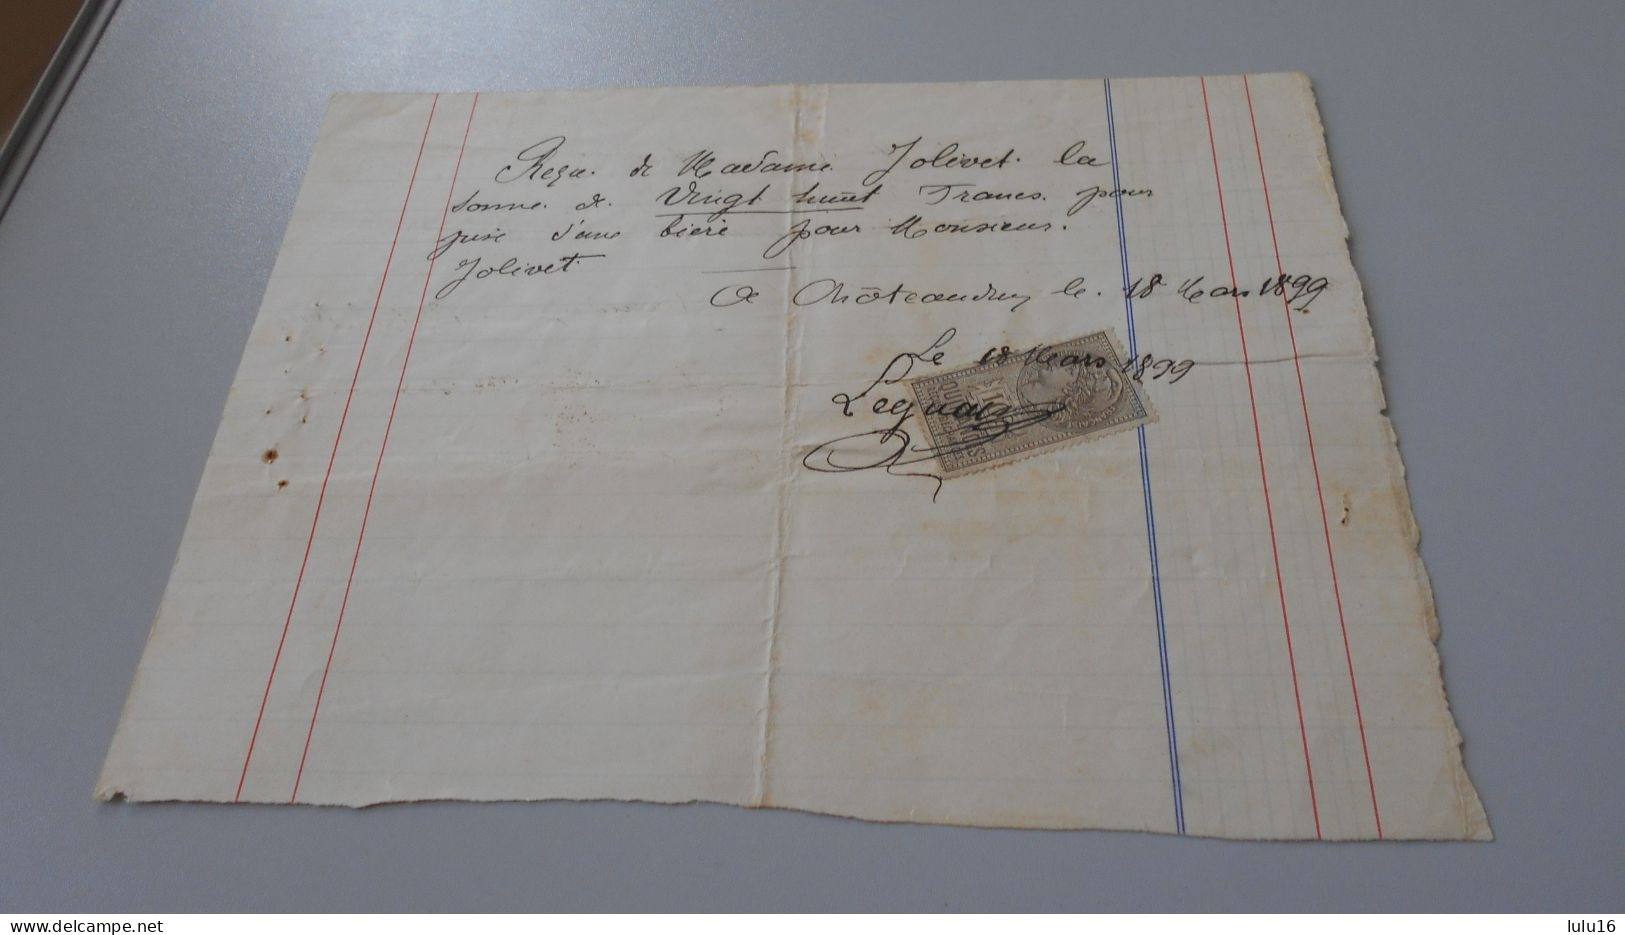 Reçu de Madame Jolivet la
somme de Vingt huit Francs pour
prix d'une bière pour Monsieur
Jolivet
a Châteaudun le 18 Mars 1899
Le 18 Mars 1899
www.delcampe.net
lulu16